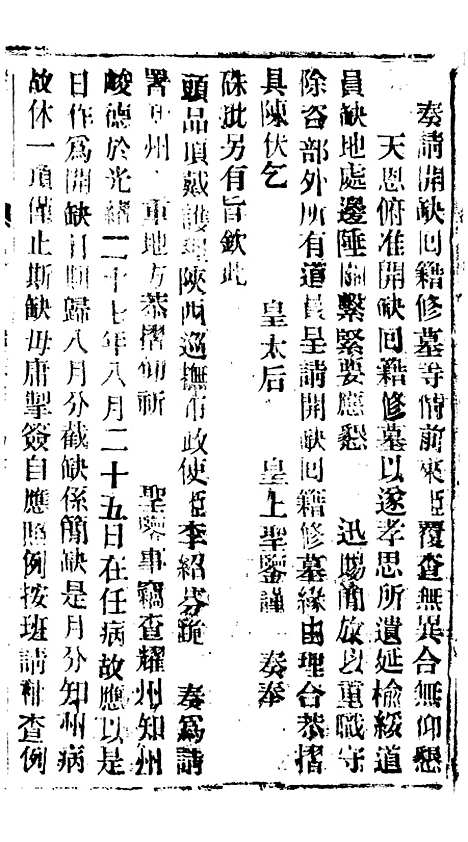 奏請開缺回籍修墓等情前來臣覆查無異合無仰懇
天恩俯准開缺回籍修墓以遂孝思所遺延榆綏道
員缺地處邊陲關繫緊要應懇 迅賜簡放以重職守
除咨部外所有道員呈請開缺回籍修墓緣由理合恭摺
具陳伏乞 皇太后 皇上聖鑒謹 奏奉
硃批另有旨欽此
頭品頂戴護理陝西巡撫布政使臣李紹芬跪 奏為請
署 州 重地方恭摺仰祈 聖鑒事竊查耀州知州
峻德於光緒二十七年八月二十五日在任病故應以是
日作為開缺日期歸八月分截缺係簡缺是月分知州病
故休一項僅止斯缺毋庸掣簽自應照例按班請補查例